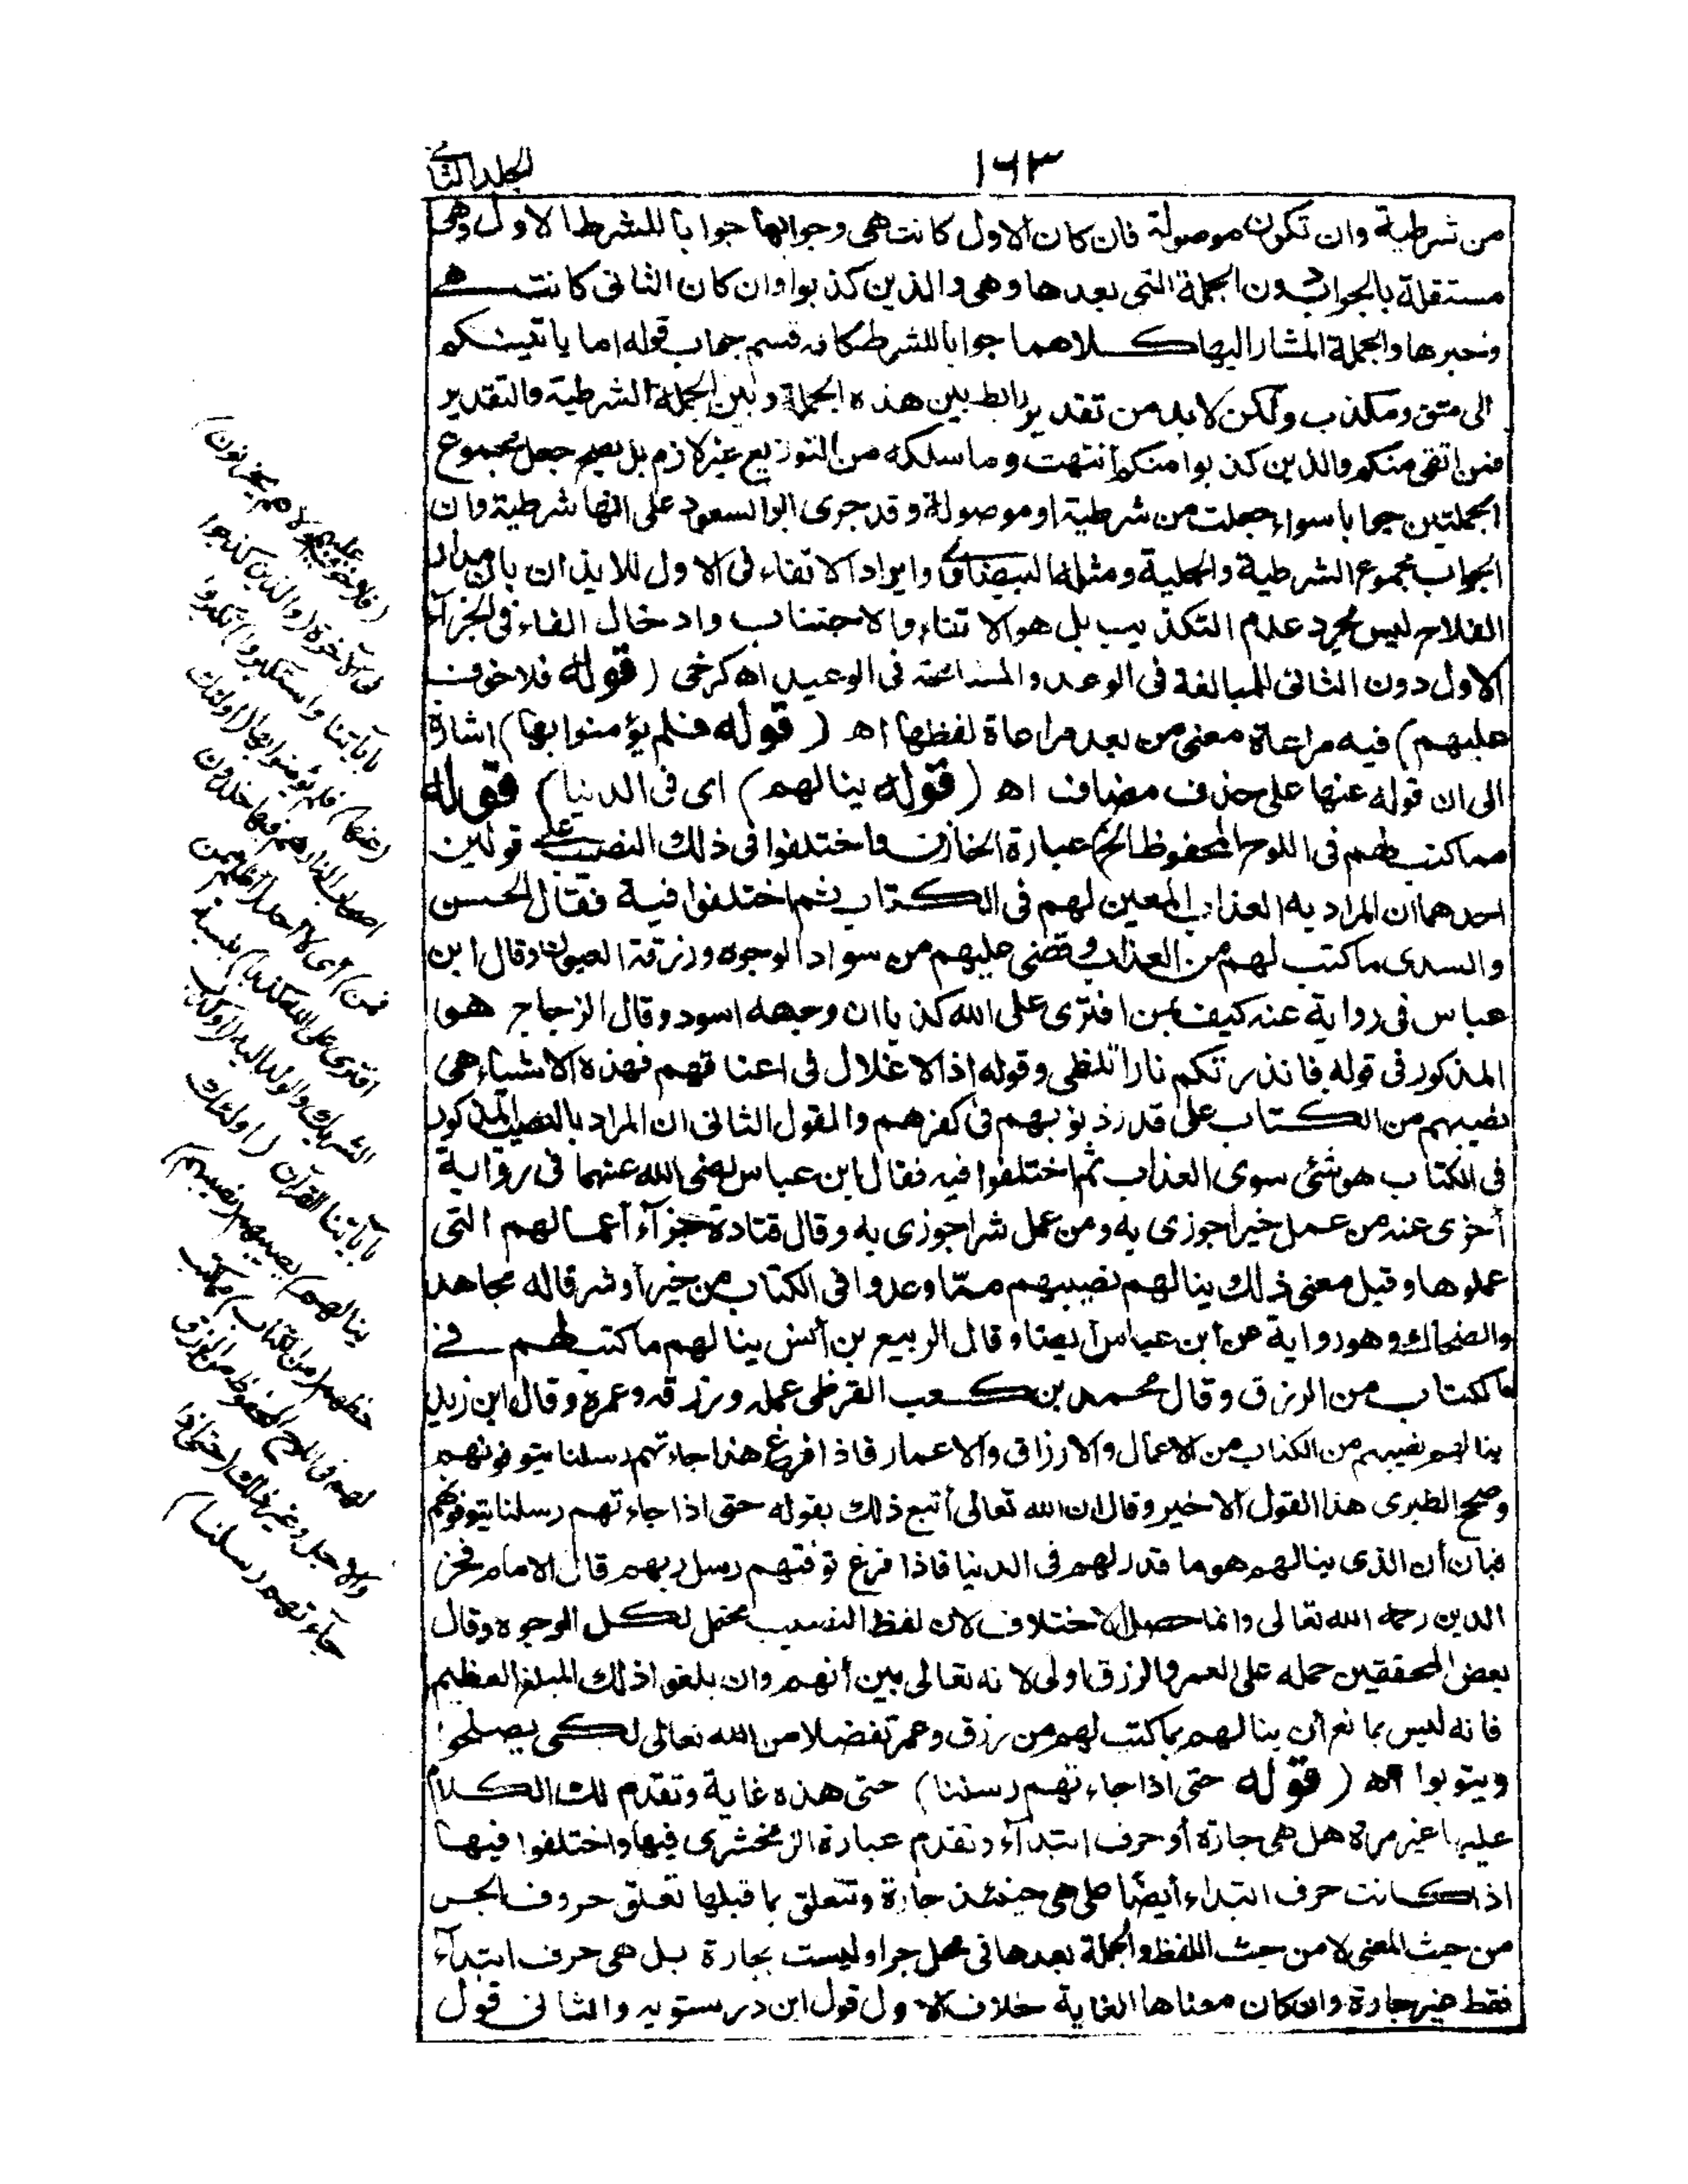 ١٦٣
الجلد الثانى
من شرطية وان تكون موصولة فان كان الاول كانت هى وجوابها جوابا للشرط الاول وهى
مستقلة بالجواب دون الجملة التى بعدها وهى والذين كذبوا وان كان الثانى كانت هى
وخبرها والجملة المشار اليها كلاهما جوابا للشرط كانه قسم جواب قوله اما ياتينكم
الى متق ومكذب ولكن لا بد من تقدير رابط بين هذه الجملة وبين الجملة الشرطية والتقدير
فمن اتقى منكم والذين كذبوا منكم انتهت وما سلكه من التوزيع غير لازم بل يصح جعل مجموع
الجملتين جوابا سواء جعلت من شرطية او موصولة وقد جرى ابو السعود على انها شرطية وان
الجواب مجموع الشرطية والحملية ومثله البيضاوى وايراد الاتقاء فى الاول للايذان بان مدار
الفلاح ليس مجرد عدم التكذيب بل هو الاتقاء والاجتناب وادخال الفاء فى الجزاء
الاول دون الثانى للمبالغة فى الوعد والمسامحة فى الوعيد اه كرخى (قوله فلا خوف
عليهم) فيه مراعاة معنى من بعد مراعاة لفظها اه (قوله فلم يؤمنوا بها) اشارة
الى ان قوله عنها على حذف مضاف اه (قوله ينالهم) اى فى الدنيا) قوله
مما كتب لهم فى اللوح المحفوظ الخ) عبارة الخازن واختلفوا فى ذلك النصيب على قولين
احدهما ان المراد به العذاب المعين لهم فى الكتاب ثم اختلفوا فيه فقال الحسن
والسدى ما كتب لهم من العذاب وقضى عليهم من سواد الوجوه وزرقة العيون وقال ابن
عباس فى رواية عنه كتب لمن افترى على الله كذبا ان وجهه اسود وقال الزجاج هو
المذكور فى قوله فانذرتكم نارا تلظى وقوله اذ الاغلال فى اعناقهم فهذه الاشياء هى
نصيبهم من الكتاب على قدر ذنوبهم فى كفرهم والقول الثانى ان المراد بالنصيب المذكور
فى الكتاب هو شئ سوى العذاب ثم اختلفوا فيه فقال ابن عباس رضى الله عنهما فى رواية
أخرى عنه من عمل خيرا جوزى به ومن عمل شرا جوزى به وقال قتادة جزآء أعمالهم التى
عملوها وقيل معنى ذلك ينالهم نصيبهم مما وعدوا فى الكتاب من خير أو شر قاله مجاهد
والضحاك وهو رواية عن ابن عباس أيضا وقال الربيع بن أنس ينالهم ما كتب لهم فى
الكتاب من الرزق وقال محمد بن كعب القرظى عمله ورزقه وعمره وقال ابن زيد
ينالهم نصيبهم من الكتاب من الاعمال والارزاق والاعمار فاذا فرغ هذا جاءتهم رسلنا يتوفونهم
وصحح الطبرى هذا القول الاخير وقال ان الله تعالى أتبع ذلك بقوله حتى اذا جاءتهم رسلنا يتوفونهم
فبان أن الذى ينالهم هو ما قدر لهم فى الدنيا فاذا فرغ توفتهم رسل ربهم قال الامام فخر
الدين رحمه الله تعالى وانما حصل الاختلاف لان لفظ النصيب محتمل لكل الوجوه وقال
بعض المحققين حمله على العمر والرزق اولى لانه تعالى بين أنهم وان بلغوا ذلك المبلغ العظيم
فانه ليس بمانع أن ينالهم ما كتب لهم من رزق وعمر تفضلا من الله تعالى لكى يصلحوا
ويتوبوا اه (قوله حتى اذا جاءتهم رسلنا) حتى هذه غاية وتقدم لك الكلام
عليها غير مرة هل هى جارة أو حرف ابتدآء وتقدم عبارة الزمخشرى فيها واختلفوا فيها
اذا كانت حرف ابتداء أيضا هل هى حينئذ جارة وتتعلق بما قبلها تعلق حروف الجر
من حيث المعنى لا من حيث اللفظ والجملة بعدها فى محل جر او ليست بجارة بل هى حرف ابتدآء
فقط غير جارة وان كان معناها الغاية خلاف الاول قول ابن درستويه والثانى قول
(فلا خوف عليهم ولا هم يحزنون)
فى الآخرة (والذين كذبوا
بآياتنا واستكبروا) تكبروا
(عنها) فلم يؤمنوا بها (اولئك
اصحاب النار هم فيها خالدون
فمن) أى لا احد (اظلم ممن
افترى على الله كذبا) بنسبة
الشريك والولد اليه (او كذب
بآياته) القرآن (اولئك
ينالهم) يصيبهم (نصيبهم)
حظهم (من الكتاب) مما كتب
لهم فى اللوح المحفوظ من الرزق
والاجل وغير ذلك (حتى اذا
جآءتهم رسلنا)